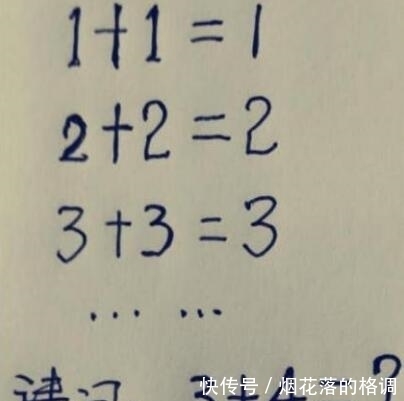 1+1=1
2+2=2
3+3=3
... ...
请问 3+4=?
快传号/烟花落的格调